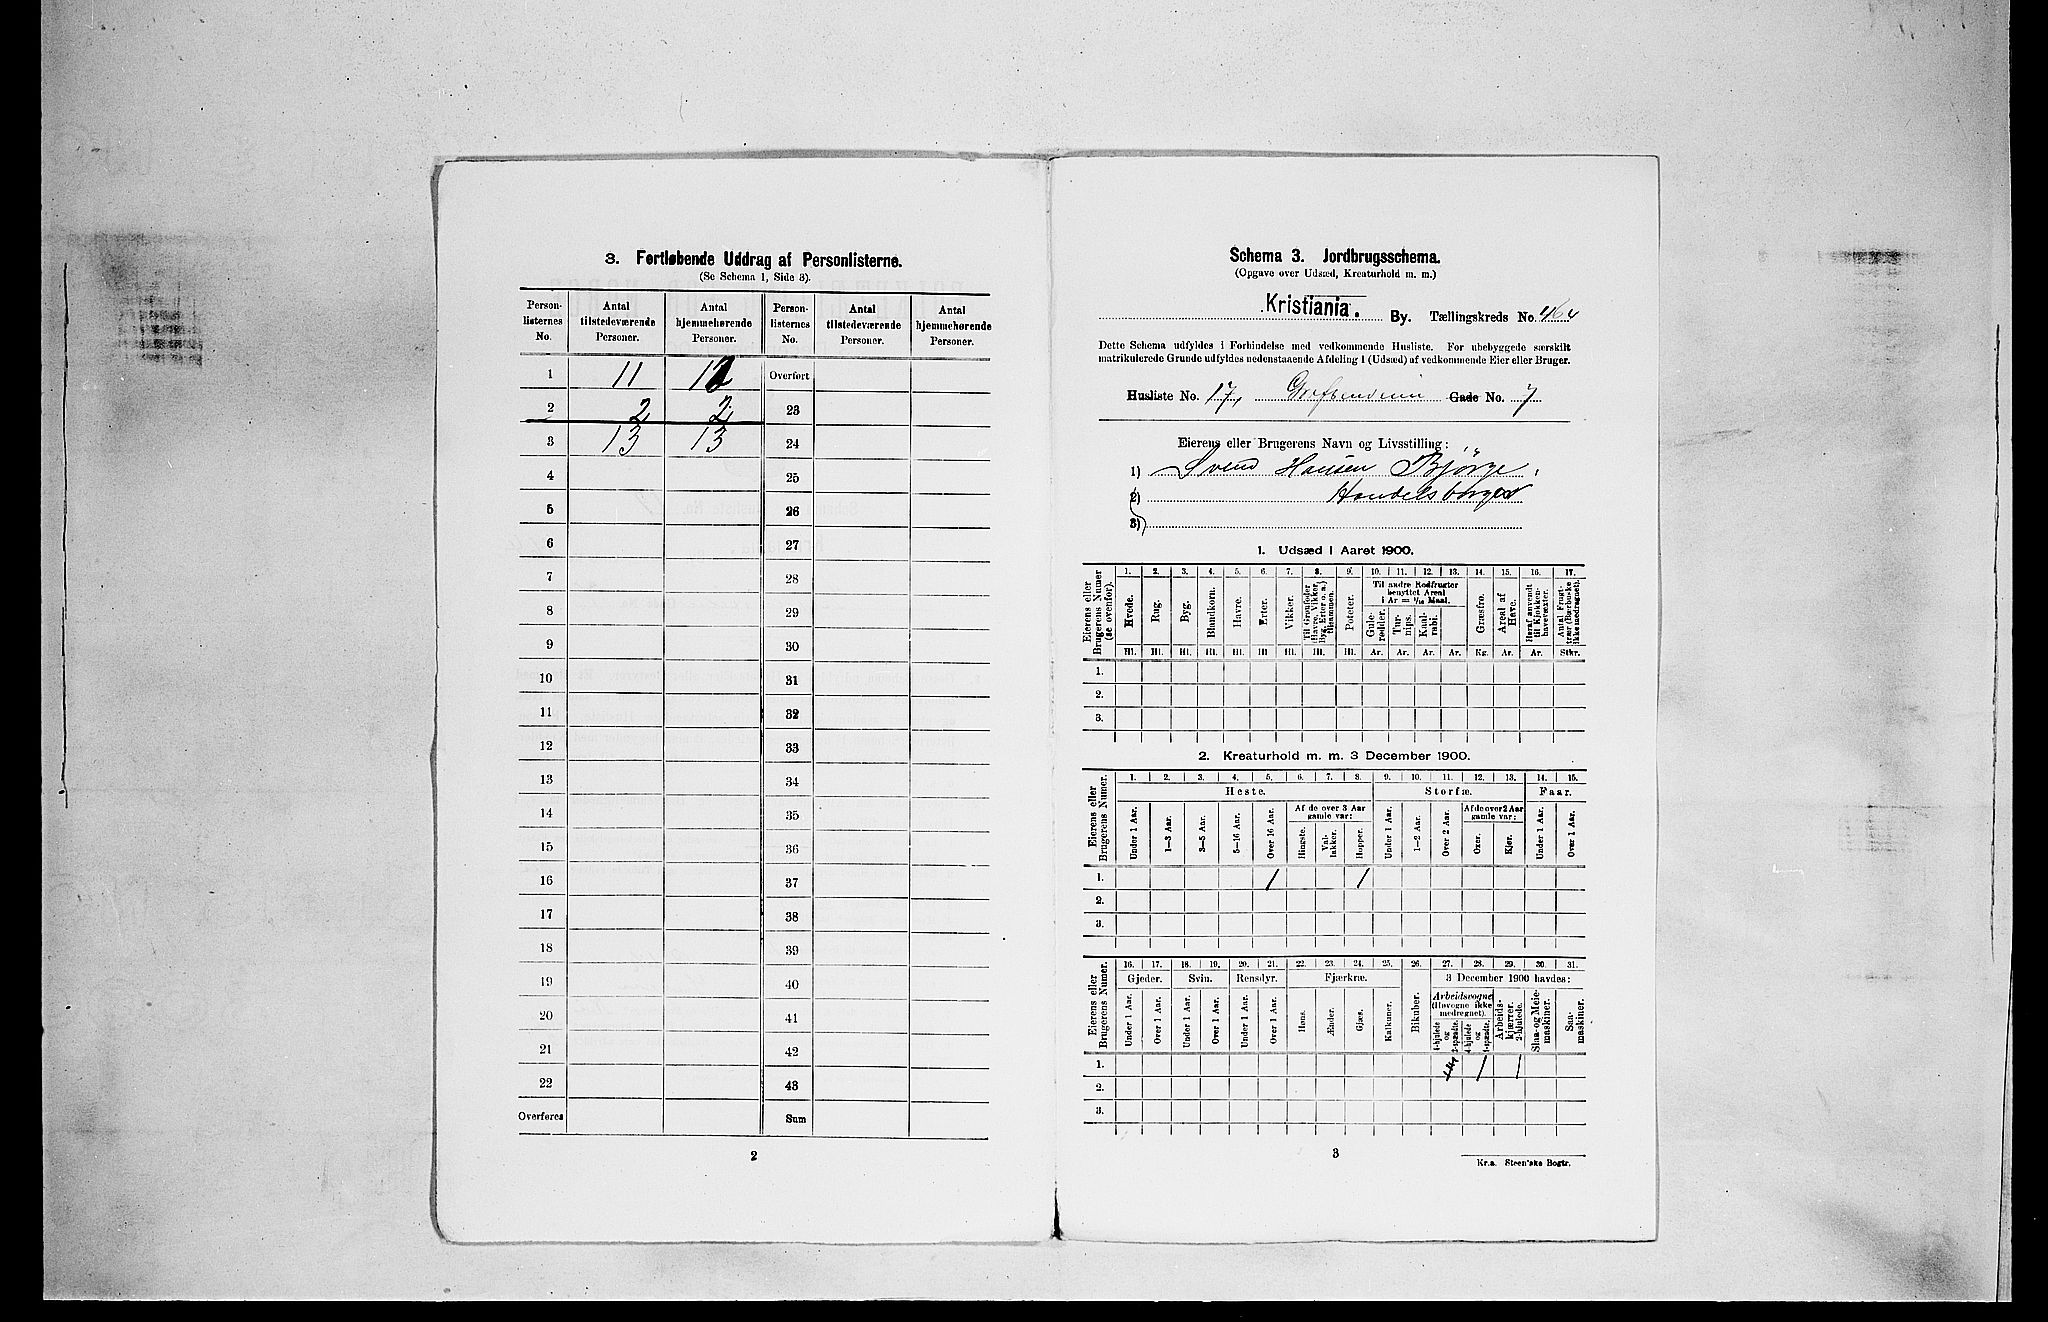 3. Fortløbende Uddrag af Personlisterne.
(Se Schema 1, Side 3).
Person-listernes No. Antal tilstedeværende Personer. Antal hjemmehørende Personer. Person-listernes No. Antal tilstedeværende Personer. Antal hjemmehørende Personer.
1 11 Overført
2 2 2 23
3 13 13 24
4 25
5 26
6 27
7 28
8 29
9 30
10 31
11 32
12 33
13 34
14 35
15 36
16 37
17 38
18 39
19 40
20 41
21 42
22 43
Overføres Sum
2
Schema 3. Jordbrugsschema.
(Opgave over Udsæd, Kreaturhold m. m.)
Kristiania. By. Tællingskreds No.
Dette Schema udfyldes i Forbindelse med vedkommende Husliste. For ubebyggede særskilt
matrikulerede Grunde udfyldes nedenstaaende Afdeling 1 (Udsæd) af vedkommende Eier eller Bruger.
Husliste No. 17, Grefsenveien Gade No. 7
Eierens eller Brugerens Navn og Livsstilling:
1) Svend Hansen Bjørge,
2) Handelsborger
3)
1. Udsæd i Aaret 1900.
Eierens eller Brugerens Numer (se ovenfor).
1. 2. 3. 4. 5. 6. 7. 8. 9. 10. 11. 12. 13. 14. 15. 16. 17.
Til andre Rodfrugter benyttet Areal i Ar = 1/10 Maal.
Hvede. Rug. Byg. Blandkorn. Havre. Erter. Vikker. Til Grønfoder (Havre, Vikker, Byg, Erter o. a.) tilsammen. Poteter. Gule-rødder. Tur-nips. Kaal-rabi. Græsfrø. Areal af Have. Heraf anvendt til Kjøkken-havevæxter. Antal Frugt-trær (Bærbuske ikke medregnet).
Hl. Hl. Hl. Hl. Hl. Hl. Hl. Hl. Hl. Ar. Ar. Ar. Ar. Kg. Ar. Ar. Stkr.
1.
2.
3.
2. Kreaturhold m. m. 3 December 1900.
Eierens eller Brugerens Numer.
1. 2. 3. 4. 5. 6. 7. 8. 9. 10. 11. 12. 13. 14. 15.
Heste. Storfæ. Faar.
Af de over 3 Aar gamle var: Af de over 2 Aar gamle var:
Under 1 Aar. 1—3 Aar. 3—5 Aar. 5—16 Aar. Over 16 Aar. Hingste. Val-lakker. Hopper. Under 1 Aar. 1—2 Aar. Over 2 Aar. Oxer. Kjør. Under 1 Aar. Over 1 Aar.
1. 1 1
2.
3.
Eierens eller Brugerens Numer.
16. 17. 18. 19. 20. 21. 22. 23. 24. 25. 26. 27. 28. 29. 30. 31.
Gjeder. Svin. Rensdyr. Fjærkræ. 3 December 1900 havdes:
Arbeidsvogne (Høvogne ikke medregnet).
Under 1 Aar. Over 1 Aar. Under 1 Aar. Over 1 Aar. Under 1 Aar. Over 1 Aar. Høns. Ænder. Gjæs. Kalkuner. Bikuber. 4-hjulede og 2-spændte. 4-hjulede og 1-spændte. Arbeids-kjærrer. 2-hjulede. Slaa- og Meie-maskiner. Saa-maskiner.
1. 1 1
2.
3.
3
Kr.a. Steen'ske Bogtr.